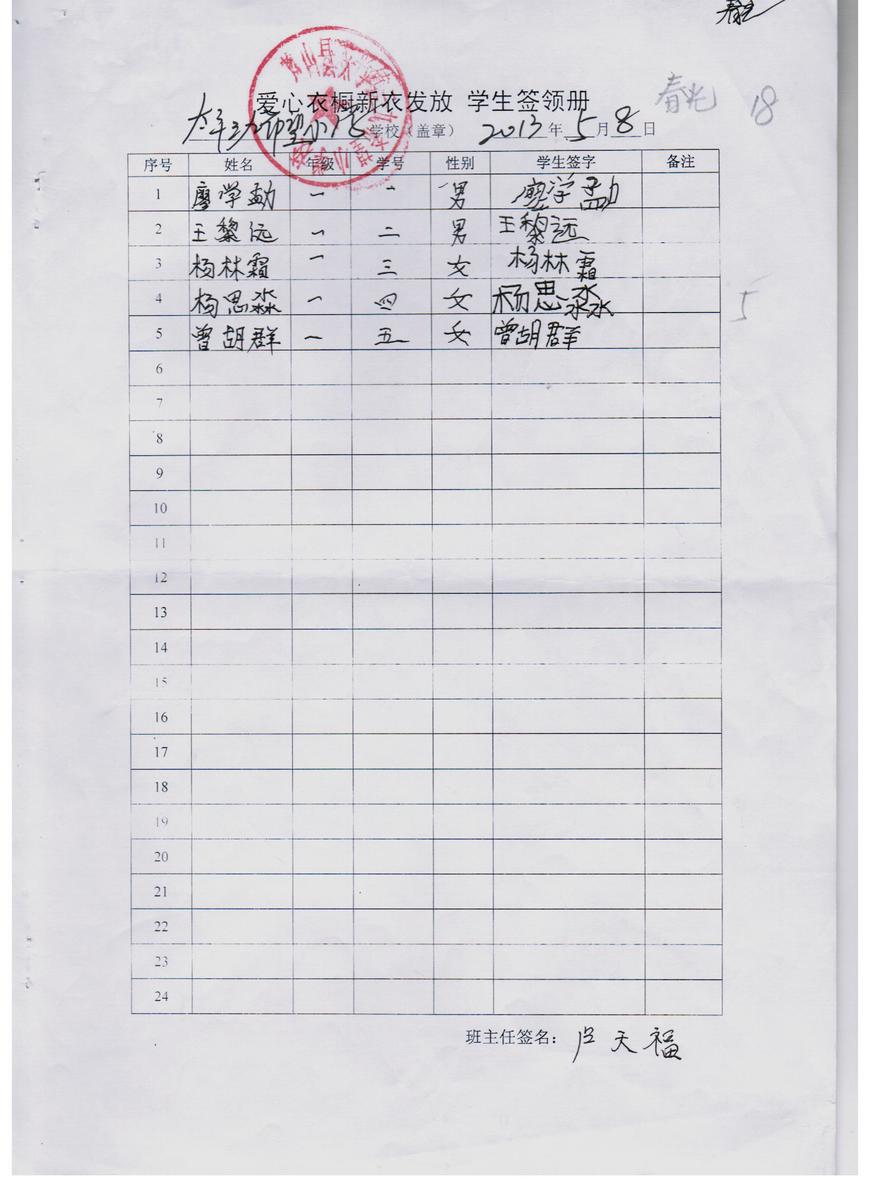 爱心衣橱新衣发放 学生签领册
希望小学 学校（盖章） 2013年5月8日
春光 18
序号 姓名 年级 学号 性别 学生签字 备注
1 廖学勐 一 一 男 廖学勐
2 王黎远 一 二 男 王黎远
3 杨林霜 一 三 女 杨林霜
4 杨思淼 一 四 女 杨思淼
5 曾胡群 一 五 女 曾胡群
5
6
7
8
9
10
11
12
13
14
15
16
17
18
19
20
21
22
23
24
班主任签名：卢天福